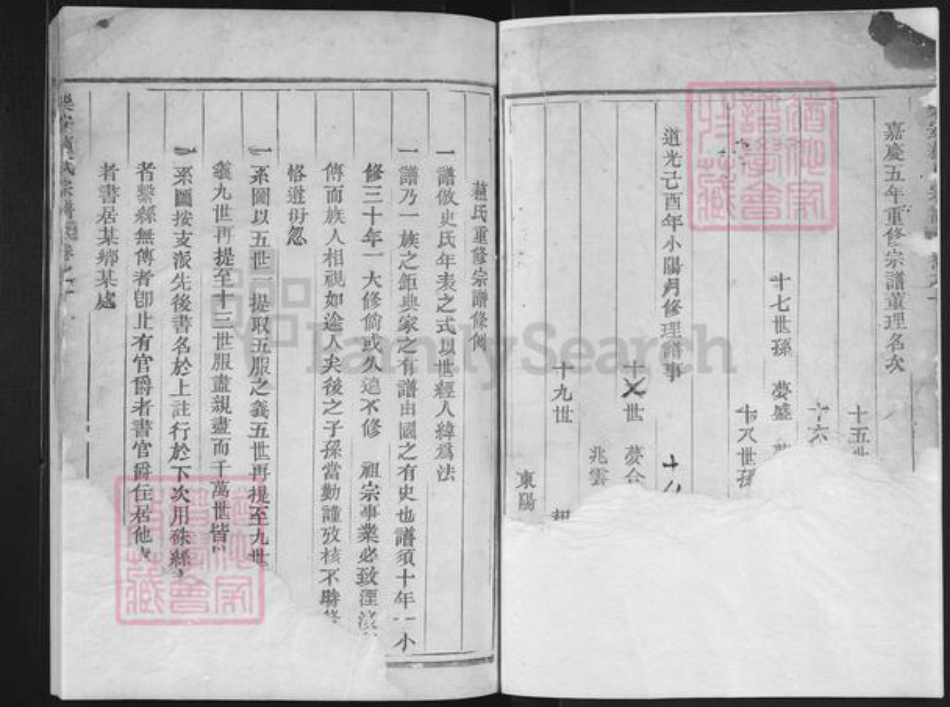 嘉慶五年重修宗譜董理名次
十五世
十六
十七世孫 夢盛
十八世孫
道光己酉年小陽月修理譜事
世 夢
兆雲
十九世
東陽
氏重修宗譜條例
一譜倣史氏年表之式以世經人緯爲法
一譜乃一族之鉅典家之有譜由國之有史也譜須十年一小
修三十年一大修倘或久遠不修 祖宗事業必致湮
傳而族人相視如途人矣後之子孫當勤謹攷核不時修
恪遵毋忽
一系圖以五世一提取五服之義五世再提至九世
義九世再提至十三世服盡親盡而千萬世皆
一系圖按支派先後書名於上註行於下次用硃綫
者繫綫無傳者卽止有官爵者書官爵住居他
者書居某鄉某處
氏宗譜 卷之一
FamilySearch